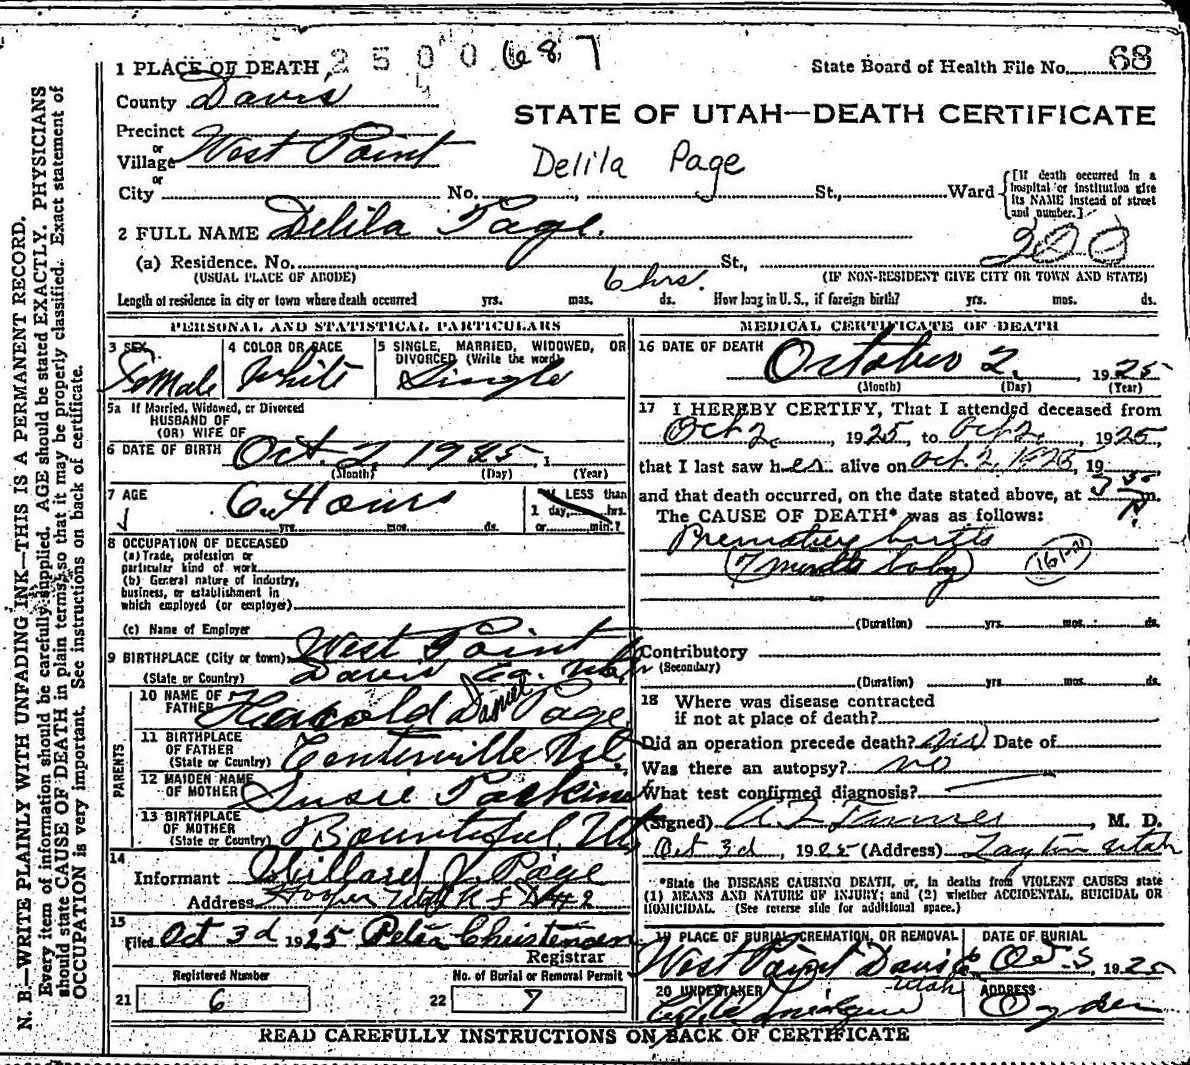 2 5 0 0 687
4
1 PLACE OF DEATH
State Board of Health File No. 68
County Davis
STATE OF UTAH—DEATH CERTIFICATE
Precinct
or
Village West Point
Delila Page
or
City No. St., Ward
[If death occurred in a
hospital or institution give
its NAME instead of street
and number.]
2 FULL NAME Delila Page.
200
(a) Residence. No. St.,
(USUAL PLACE OF ABODE) 6 hrs. (IF NON-RESIDENT GIVE CITY OR TOWN AND STATE)
Length of residence in city or town where death occurred yrs. mos. ds. How long in U. S., if foreign birth? yrs. mos. ds.
PERSONAL AND STATISTICAL PARTICULARS
3 SEX Female
4 COLOR OR RACE White
5 SINGLE, MARRIED, WIDOWED, OR
DIVORCED (Write the word)
Single
5a If Married, Widowed, or Divorced
HUSBAND OF
(OR) WIFE OF
6 DATE OF BIRTH Oct. 2 1925, 1
(Month) (Day) (Year)
7 AGE 6 Hours
yrs. mos. ds.
If LESS than
1 day, hrs.
or min.?
8 OCCUPATION OF DECEASED
(a) Trade, profession or
particular kind of work
(b) General nature of industry,
business, or establishment in
which employed (or employer)
(c) Name of Employer
9 BIRTHPLACE (City or town) West Point
(State or Country) Davis Co. Utah
PARENTS
10 NAME OF
FATHER Harold Daniel Page
11 BIRTHPLACE
OF FATHER
(State or Country) Centerville Ut.
12 MAIDEN NAME
OF MOTHER Susie Parkins
13 BIRTHPLACE
OF MOTHER
(State or Country) Bountiful, Ut
14
Informant Willard J. Page
Address Hooper Utah
15
Filed Oct 3d 1925 Petra Christensen
Registrar
Registered Number
No. of Burial or Removal Permit
21 6
22 7
MEDICAL CERTIFICATE OF DEATH
16 DATE OF DEATH October 2, 1925
(Month) (Day) (Year)
17 I HEREBY CERTIFY, That I attended deceased from
Oct 2, 1925, to Oct 2, 1925,
that I last saw her alive on Oct. 2, 1925, 19
and that death occurred, on the date stated above, at m.
The CAUSE OF DEATH* was as follows:
Premature birth
(7 months baby)
(Duration) yrs. mos. ds.
Contributory
(Secondary)
(Duration) yrs. mos. ds.
18 Where was disease contracted
if not at place of death?
Did an operation precede death? no Date of
Was there an autopsy? no
What test confirmed diagnosis?
(Signed) A Z Tanner, M. D.
Oct 3d, 1925 (Address) Layton Utah
*State the DISEASE CAUSING DEATH, or, in deaths from VIOLENT CAUSES state
(1) MEANS AND NATURE OF INJURY; and (2) whether ACCIDENTAL, SUICIDAL OR
HOMICIDAL. (See reverse side for additional space.)
19 PLACE OF BURIAL, CREMATION, OR REMOVAL
West Point Davis Co
Utah
DATE OF BURIAL
Oct. 3, 1925
20 UNDERTAKER
ADDRESS
Ogden
READ CAREFULLY INSTRUCTIONS ON BACK OF CERTIFICATE
N. B.—WRITE PLAINLY WITH UNFADING INK—THIS IS A PERMANENT RECORD.
Every item of information should be carefully supplied. AGE should be stated EXACTLY. PHYSICIANS
should state CAUSE OF DEATH in plain terms, so that it may be properly classified. Exact statement of
OCCUPATION is very important. See instructions on back of certificate.